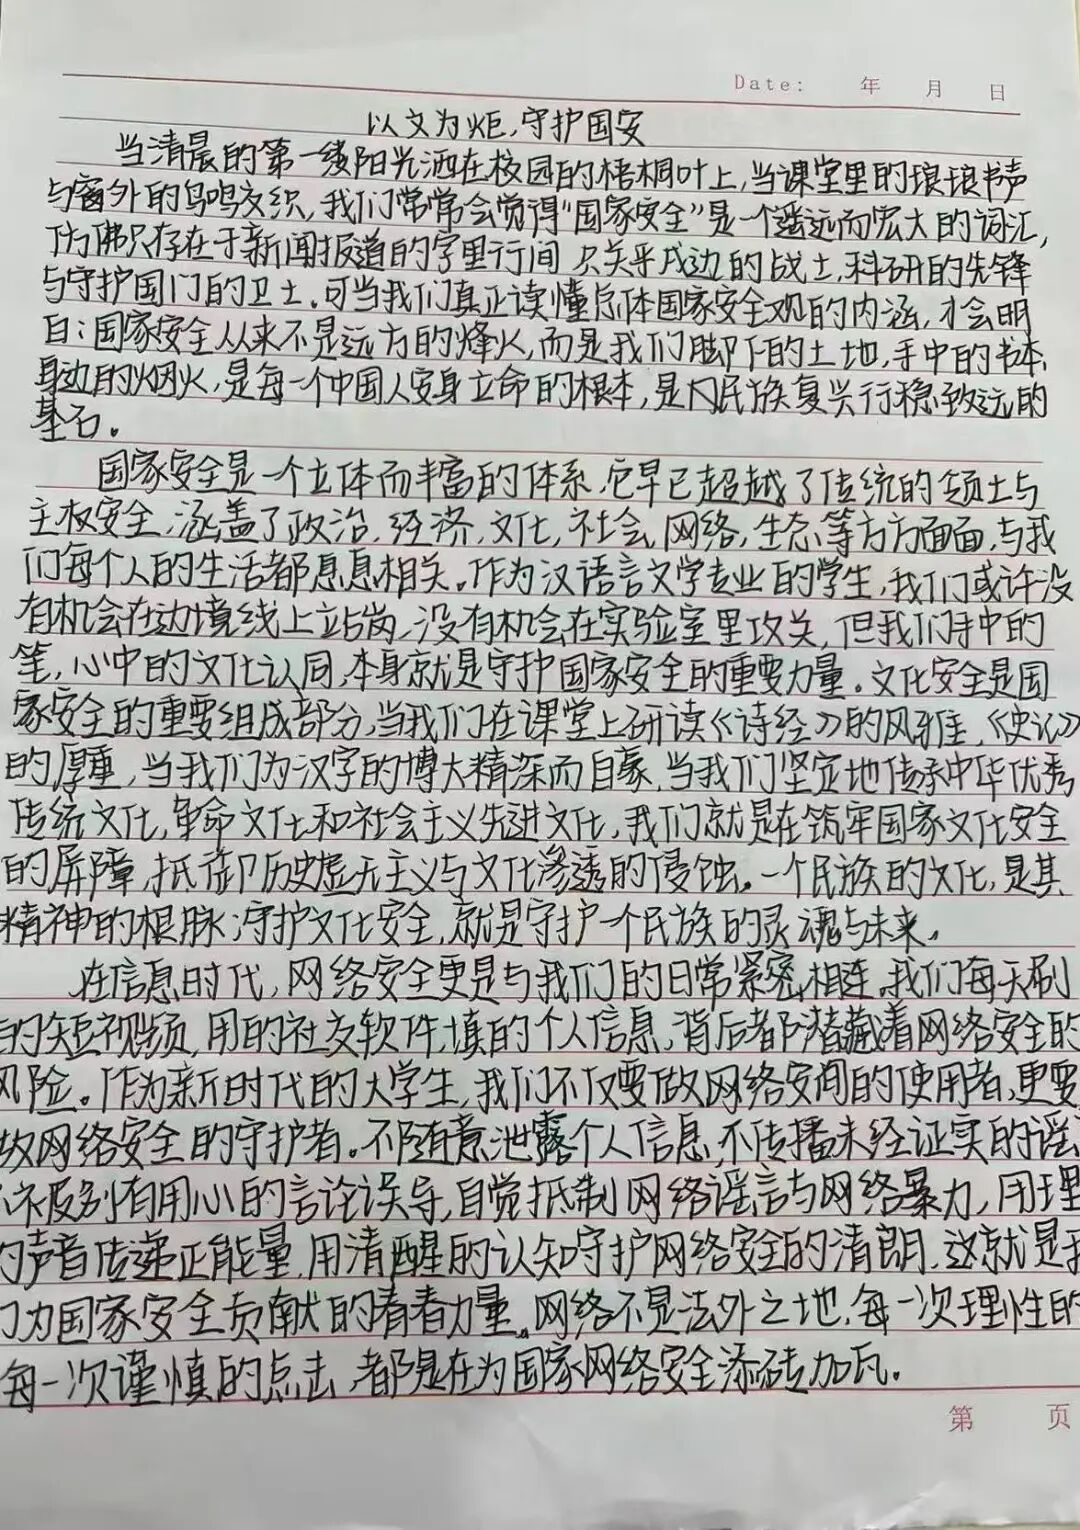 Date: 年 月 日
以文为炬,守护国安
当清晨的第一缕阳光洒在校园的梧桐叶上,当课堂里的琅琅书声
与窗外的鸟鸣交织,我们常常会觉得“国家安全”是一个遥远而宏大的词汇,
仿佛只存在于新闻报道的字里行间 只关乎戍边的战士,科研的先锋
与守护国门的卫士。可当我们真正读懂总体国家安全观的内涵,才会明
白:国家安全从来不是远方的烽火,而是我们脚下的土地,手中的书本,
身边的烟火,是每一个中国人安身立命的根本,是民族复兴行稳致远的
基石。
国家安全是一个立体而丰富的体系,它早已超越了传统的领土与
主权安全,涵盖了政治,经济,文化,社会,网络,生态等方方面面,与我
们每个人的生活都息息相关。作为汉语言文学专业的学生,我们或许没
有机会在边境线上站岗,没有机会在实验室里攻关,但我们手中的
笔,心中的文化认同,本身就是守护国家安全的重要力量。文化安全是国
家安全的重要组成部分,当我们在课堂上研读《诗经》的风雅,《史记》
的厚重,当我们为汉字的博大精深而自豪,当我们坚定地传承中华优秀
传统文化,革命文化和社会主义先进文化,我们就是在筑牢国家文化安全
的屏障,抵御历史虚无主义与文化渗透的侵蚀。一个民族的文化,是其
精神的根脉;守护文化安全,就是守护一个民族的灵魂与未来。
在信息时代,网络安全更是与我们的日常紧密相连。我们每天刷
的短视频,用的社交软件,填的个人信息,背后都潜藏着网络安全的
风险。作为新时代的大学生,我们不仅要做网络空间的使用者,更要
做网络安全的守护者。不随意泄露个人信息,不传播未经证实的谣
不被别有用心的言论误导,自觉抵制网络谣言与网络暴力,用理
的声音传递正能量,用清醒的认知守护网络安全的清朗,这就是我
们为国家安全贡献的青春力量。网络不是法外之地,每一次理性的
每一次谨慎的点击,都是在为国家网络安全添砖加瓦。
第 页